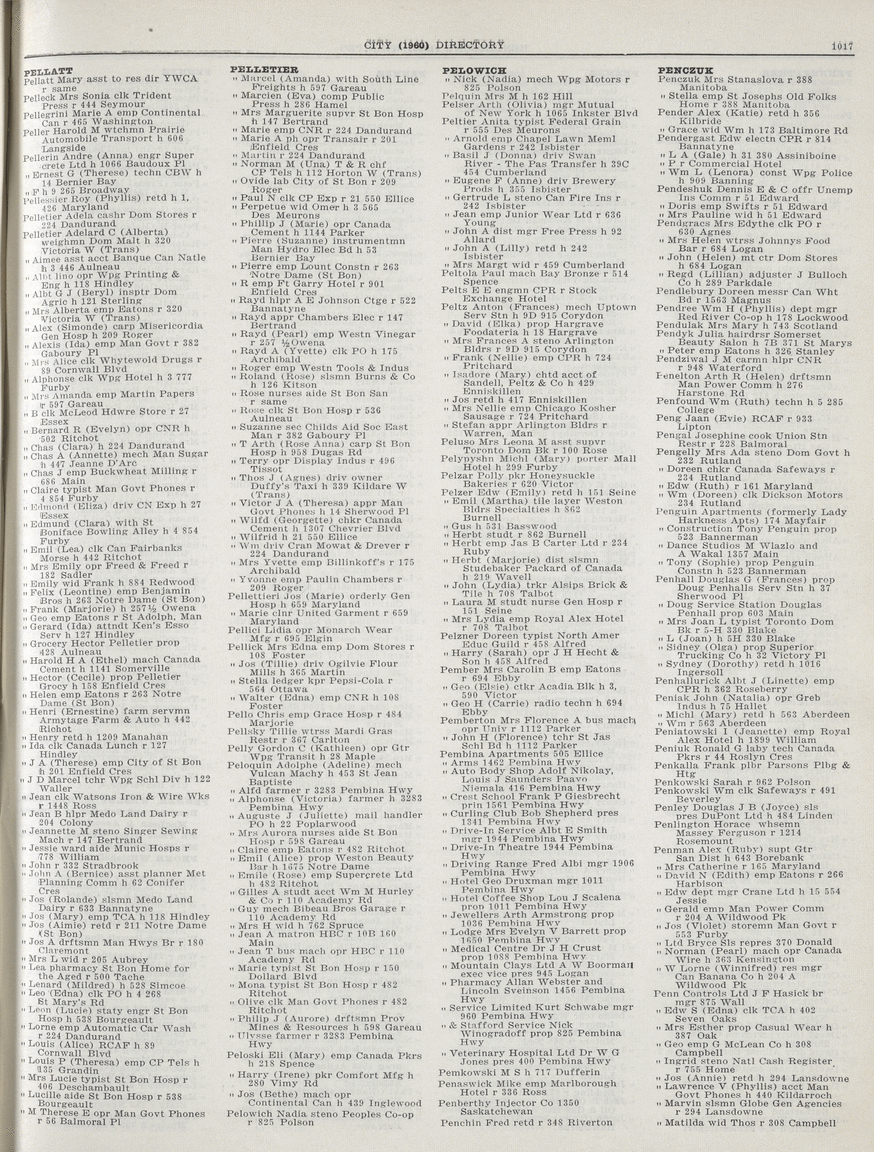 CITY (1960) DIRECTORY
1017
PELLATT
Pellatt Mary asst to res dir YWCA
r same
Pelleck Mrs Sonia clk Trident
Press r 444 Seymour
Pellegrini Marie A emp Continental
Can r 465 Washington
Peller Harold M wtchmn Prairie
Automobile Transport h 606
Langside
Pellerin Andre (Anna) engr Super
crete Ltd h 1066 Baudoux Pl
" Ernest G (Therese) techn CBW h
14 Bernier Bay
" F h 9 265 Broadway
Pellessier Roy (Phyllis) retd h 1,
426 Maryland
Pelletier Adela cashr Dom Stores r
224 Dandurand
Pelletier Adelard C (Alberta)
weighmn Dom Malt h 320
Victoria W (Trans)
" Aimee asst acct Banque Can Natle
h 3 446 Aulneau
" Albt lino opr Wpg Printing &
Eng h 118 Hindley
" Albt G J (Beryl) insptr Dom
Agric h 121 Sterling
" Mrs Alberta emp Eatons r 320
Victoria W (Trans)
" Alex (Simonde) carp Misericordia
Gen Hosp h 209 Roger
" Alexis (Ida) emp Man Govt r 382
Gaboury Pl
" Mrs Alice clk Whytewold Drugs r
89 Cornwall Blvd
" Alphonse clk Wpg Hotel h 3 777
Furby
" Mrs Amanda emp Martin Papers
r 597 Gareau
" B clk McLeod Hdwre Store r 27
Essex
" Bernard R (Evelyn) opr CNR h
502 Ritchot
" Chas (Clara) h 224 Dandurand
" Chas A (Annette) mech Man Sugar
h 447 Jeanne D'Arc
" Chas J emp Buckwheat Milling r
686 Main
" Claire typist Man Govt Phones r
4 854 Furby
" Edmond (Eliza) driv CN Exp h 27
Essex
" Edmund (Clara) with St
Boniface Bowling Alley h 4 854
Furby
" Emil (Lea) clk Can Fairbanks
Morse h 442 Ritchot
" Mrs Emily opr Freed & Freed r
182 Sadler
" Emily wid Frank h 884 Redwood
" Felix (Leontine) emp Benjamin
Bros h 263 Notre Dame (St Bon)
" Frank (Marjorie) h 257½ Owena
" Geo emp Eatons r St Adolph, Man
" Gerard (Ida) attndt Ken's Esso
Serv h 127 Hindley
" Grocery Hector Pelletier prop
428 Aulneau
" Harold H A (Ethel) mach Canada
Cement h 1141 Somerville
" Hector (Cecile) prop Pelletier
Grocy h 158 Enfield Cres
" Helen emp Eatons r 263 Notre
Dame (St Bon)
" Henri (Ernestine) farm servmn
Armytage Farm & Auto h 442
Richot
" Henry retd h 1209 Manahan
" Ida clk Canada Lunch r 127
Hindley
" J A (Therese) emp City of St Bon
h 201 Enfield Cres
" J D Marcel tchr Wpg Schl Div h 122
Waller
" Jean clk Watsons Iron & Wire Wks
r 1448 Ross
" Jean B hlpr Medo Land Dairy r
204 Colony
" Jeannette M steno Singer Sewing
Mach r 147 Bertrand
" Jessie ward aide Munic Hosps r
778 William
" John r 332 Stradbrook
" John A (Bernice) asst planner Met
Planning Comm h 62 Conifer
Cres
" Jos (Rolande) slsmn Medo Land
Dairy r 633 Bannatyne
" Jos (Mary) emp TCA h 118 Hindley
" Jos (Aimie) retd r 211 Notre Dame
(St Bon)
" Jos A drftsmn Man Hwys Br r 180
Claremont
" Mrs L wid r 205 Aubrey
" Lea pharmacy St Bon Home for
the Aged r 500 Tache
" Lenard (Mildred) h 528 Simcoe
" Leo (Edna) clk PO h 4 268
St Mary's Rd
" Leon (Lucie) staty engr St Bon
Hosp h 538 Bourgeault
" Lorne emp Automatic Car Wash
r 224 Dandurand
" Louis (Alice) RCAF h 89
Cornwall Blvd
" Louis P (Theresa) emp CP Tels h
135 Grandin
" Mrs Lucie typist St Bon Hosp r
406 Deschambault
" Lucille aide St Bon Hosp r 538
Bourgeault
" M Therese E opr Man Govt Phones
r 56 Balmoral Pl
PELLETIER
" Marcel (Amanda) with South Line
Freights h 597 Gareau
" Marcien (Eva) comp Public
Press h 286 Hamel
" Mrs Marguerite supvr St Bon Hosp
h 147 Bertrand
" Marie emp CNR r 224 Dandurand
" Marie A ph opr Transair r 201
Enfield Cres
" Martin r 224 Dandurand
" Norman M (Una) T & R chf
CP Tels h 112 Horton W (Trans)
" Ovide lab City of St Bon r 209
Roger
" Paul N clk CP Exp r 21 550 Ellice
" Perpetue wid Omer h 3 565
Des Meurons
" Phillip J (Marie) opr Canada
Cement h 1144 Parker
" Pierre (Suzanne) instrumentmn
Man Hydro Elec Bd h 53
Bernier Bay
" Pierre emp Lount Constn r 263
Notre Dame (St Bon)
" R emp Ft Garry Hotel r 901
Enfield Cres
" Rayd hlpr A E Johnson Ctge r 522
Bannatyne
" Rayd appr Chambers Elec r 147
Bertrand
" Rayd (Pearl) emp Westn Vinegar
r 257 ½ Owena
" Rayd A (Yvette) clk PO h 175
Archibald
" Roger emp Westn Tools & Indus
" Roland (Rose) slsmn Burns & Co
h 126 Kitson
" Rose nurses aide St Bon San
r same
" Rose clk St Bon Hosp r 536
Aulneau
" Suzanne sec Childs Aid Soc East
Man r 382 Gaboury Pl
" T Arth (Rose Anna) carp St Bon
Hosp h 958 Dugas Rd
" Terry opr Display Indus r 496
Tissot
" Thos J (Agnes) driv owner
Duffy's Taxi h 339 Kildare W
(Trans)
" Victor J A (Theresa) appr Man
Govt Phones h 14 Sherwood Pl
" Wilfd (Georgette) chkr Canada
Cement h 1307 Chevrier Blvd
" Wilfrid h 21 550 Ellice
" Wm driv Cran Mowat & Drever r
224 Dandurand
" Mrs Yvette emp Billinkoff's r 175
Archibald
" Yvonne emp Paulin Chambers r
209 Roger
Pellettieri Jos (Marie) orderly Gen
Hosp h 659 Maryland
" Marie clnr United Garment r 659
Maryland
Pellici Lidia opr Monarch Wear
Mfg r 695 Elgin
Pellick Mrs Edna emp Dom Stores r
108 Foster
" Jos (Tillie) driv Ogilvie Flour
Mills h 365 Martin
" Stella ledger kpr Pepsi-Cola r
564 Ottawa
" Walter (Edna) emp CNR h 108
Foster
Pello Chris emp Grace Hosp r 484
Marjorie
Pellsky Tillie wtrss Mardi Gras
Restr r 367 Carlton
Pelly Gordon C (Kathleen) opr Gtr
Wpg Transit h 28 Maple
Peloquin Adolphe (Adeline) mech
Vulcan Machy h 453 St Jean
Baptiste
" Alfd farmer r 3283 Pembina Hwy
" Alphonse (Victoria) farmer h 3283
Pembina Hwy
" Auguste J (Juliette) mail handler
PO h 22 Poplarwood
" Mrs Aurora nurses aide St Bon
Hosp r 598 Gareau
" Claire emp Eatons r 482 Ritchot
" Emil (Alice) prop Weston Beauty
Bar h 1675 Notre Dame
" Emile (Rose) emp Supercrete Ltd
h 482 Ritchot
" Gilles A studt acct Wm M Hurley
& Co r 110 Academy Rd
" Guy mech Bibeau Bros Garage r
110 Academy Rd
" Mrs H wid h 762 Spruce
" Jean A matron HBC r 10B 160
Main
" Jean T bus mach opr HBC r 110
Academy Rd
" Marie typist St Bon Hosp r 150
Dollard Blvd
" Mona typist St Bon Hosp r 482
Ritchot
" Olive clk Man Govt Phones r 482
Ritchot
" Philip J (Aurore) drftsmn Prov
Mines & Resources h 598 Gareau
" Ulysse farmer r 3283 Pembina
Hwy
Peloski Eli (Mary) emp Canada Pkrs
h 218 Spence
" Harry (Irene) pkr Comfort Mfg h
280 Vimy Rd
" Jos (Bethe) mach opr
Continental Can h 439 Inglewood
Pelowich Nadia steno Peoples Co-op
r 825 Polson
PELOWICH
" Nick (Nadia) mech Wpg Motors r
825 Polson
Pelquin Mrs M h 162 Hill
Pelser Arth (Olivia) mgr Mutual
of New York h 1065 Inkster Blvd
Peltier Anita typist Federal Grain
r 555 Des Meurons
" Arnold emp Chapel Lawn Meml
Gardens r 242 Isbister
" Basil J (Donna) driv Swan
River - The Pas Transfer h 39C
454 Cumberland
" Eugene F (Anne) driv Brewery
Prods h 355 Isbister
" Gertrude L steno Can Fire Ins r
242 Isbister
" Jean emp Junior Wear Ltd r 636
Young
" John A dist mgr Free Press h 92
Allard
" John A (Lilly) retd h 242
Isbister
" Mrs Margt wid r 459 Cumberland
Peltola Paul mach Bay Bronze r 514
Spence
Pelts E E engmn CPR r Stock
Exchange Hotel
Peltz Anton (Frances) mech Uptown
Serv Stn h 9D 915 Corydon
" David (Elka) prop Hargrave
Foodateria h 18 Hargrave
" Mrs Frances A steno Arlington
Bldrs r 9D 915 Corydon
" Frank (Nellie) emp CPR h 724
Pritchard
" Isadore (Mary) chtd acct of
Sandell, Peltz & Co h 429
Enniskillen
" Jos retd h 417 Enniskillen
" Mrs Nellie emp Chicago Kosher
Sausage r 724 Pritchard
" Stefan appr Arlington Bldrs r
Warren, Man
Peluso Mrs Leona M asst supvr
Toronto Dom Bk r 100 Rose
Pelypyshn Michl (Mary) porter Mall
Hotel h 299 Furby
Pelzar Polly pkr Honeysuckle
Bakeries r 620 Victor
Pelzer Edw (Emily) retd h 151 Seine
" Emil (Martha) tile layer Weston
Bldrs Specialties h 862
Burnell
" Gus h 531 Basswood
" Herbt studt r 862 Burnell
" Herbt emp Jas B Carter Ltd r 234
Ruby
" Herbt (Marjorie) dist slsmn
Studebaker Packard of Canada
h 219 Wavell
" John (Lydia) trkr Alsips Brick &
Tile h 708 Talbot
" Laura M studt nurse Gen Hosp r
151 Seine
" Mrs Lydia emp Royal Alex Hotel
r 708 Talbot
Pelzner Doreen typist North Amer
Educ Guild r 458 Alfred
" Harry (Sarah) opr J H Hecht &
Son h 458 Alfred
Pember Mrs Carolin B emp Eatons
r 694 Ebby
" Geo (Elsie) ctkr Acadia Blk h 3,
590 Victor
" Geo H (Carrie) radio techn h 694
Ebby
Pemberton Mrs Florence A bus mach
opr Univ r 1112 Parker
" John H (Florence) tchr St Jas
Schl Bd h 1112 Parker
Pembina Apartments 505 Ellice
" Arms 1462 Pembina Hwy
" Auto Body Shop Adolf Nikolay,
Louis J Saunders Paavo
Niemala 416 Pembina Hwy
" Crest School Frank P Giesbrecht
prin 1561 Pembina Hwy
" Curling Club Bob Shepherd pres
1341 Pembina Hwy
" Drive-In Service Albt E Smith
mgr 1944 Pembina Hwy
" Drive-In Theatre 1944 Pembina
Hwy
" Driving Range Fred Albi mgr 1906
Pembina Hwy
" Hotel Geo Druxman mgr 1011
Pembina Hwy
" Hotel Coffee Shop Lou J Scalena
prop 1011 Pembina Hwy
" Jewellers Arth Armstrong prop
1036 Pembina Hwy
" Lodge Mrs Evelyn V Barrett prop
1650 Pembina Hwy
" Medical Centre Dr J H Crust
prop 1088 Pembina Hwy
" Mountain Clays Ltd A W Boorman
exec vice pres 945 Logan
" Pharmacy Allan Webster and
Lincoln Sveinson 1456 Pembina
Hwy
" Service Limited Kurt Schwabe mgr
960 Pembina Hwy
" & Stafford Service Nick
Winogradoff prop 825 Pembina
Hwy
" Veterinary Hospital Ltd Dr W G
Jones pres 400 Pembina Hwy
Pemkowski M S h 717 Dufferin
Penaswick Mike emp Marlborough
Hotel r 336 Ross
Penberthy Injector Co 1350
Saskatchewan
Penchin Fred retd r 348 Riverton
PENCZUK
Penczuk Mrs Stanaslova r 388
Manitoba
" Stella emp St Josephs Old Folks
Home r 388 Manitoba
Pender Alex (Katie) retd h 356
Kilbride
" Grace wid Wm h 173 Baltimore Rd
Pendergast Edw electn CPR r 814
Bannatyne
" L A (Gale) h 31 Assiniboine
" P r Commercial Hotel
" Wm L (Lenora) const Wpg Police
h 909 Banning
Pendeshuk Dennis E & C offr Unemp
Ins Comm r 51 Edward
" Doris emp Swifts r 51 Edward
" Mrs Pauline wid h 51 Edward
Pendgracs Mrs Edythe clk PO r
630 Agnes
" Mrs Helen wtrss Johnnys Food
Bar r 684 Logan
" John (Helen) mt ctr Dom Stores
h 684 Logan
" Regd (Lilian) adjuster J Bulloch
Co h 289 Parkdale
Pendlebury Doreen messr Can Wht
Bd r 1563 Magnus
Pendree Wm H (Phyllis) dept mgr
Red River Co-op h 178 Lockwood
Pendulak Mrs Mary h 743 Scotland
Pendyk Julia hairdrsr Somerset
Beauty Salon h 7B 371 St Marys
" Peter emp Eatons h 326 Stanley
Pendziwal J M carmn hlpr CNR
r 948 Waterford
Penelton Arth R (Helen) drftsmn
Man Power Comm h 276
Harstone Rd
Penfound Wm (Ruth) techn h 5 285
College
Peng Jaan (Evie) RCAF r 933
Lipton
Pengal Josephine cook Union Stn
Restr r 228 Balmoral
Pengelly Mrs Ada steno Dom Govt h
232 Rutland
" Doreen chkr Canada Safeways r
234 Rutland
" Edw (Ruth) r 161 Maryland
" Wm (Doreen) clk Dickson Motors
234 Rutland
Penguin Apartments (formerly Lady
Harkness Apts) 174 Mayfair
" Construction Tony Penguin prop
523 Bannerman
" Dance Studios M Wlazlo and
A Wakal 1357 Main
" Tony (Sophie) prop Penguin
Constn h 523 Bannerman
Penhall Douglas G (Frances) prop
Doug Penhalls Serv Stn h 37
Sherwood Pl
" Doug Service Station Douglas
Penhall prop 603 Main
" Mrs Joan L typist Toronto Dom
Bk r 5-H 330 Blake
" L (Joan) h 5H 330 Blake
" Sidney (Olga) prop Superior
Trucking Co h 32 Victory Pl
" Sydney (Dorothy) retd h 1016
Ingersoll
Penhallurick Albt J (Linette) emp
CPR h 362 Roseberry
Peniak John (Natalia) opr Greb
Indus h 75 Hallet
" Michl (Mary) retd h 563 Aberdeen
" Wm r 563 Aberdeen
Peniatowski I (Jeanette) emp Royal
Alex Hotel h 1899 William
Peniuk Ronald G laby tech Canada
Pkrs r 44 Roslyn Cres
Penkalla Frank plbr Parsons Plbg &
Htg
Penkowski Sarah r 962 Polson
Penkowski Wm clk Safeways r 491
Beverley
Penley Douglas J B (Joyce) sls
pres DuPont Ltd h 484 Linden
Penlington Horace whsemn
Massey Ferguson r 1214
Rosemount
Penman Alex (Ruby) supt Gtr
San Dist h 643 Borebank
" Mrs Catherine r 165 Maryland
" David N (Edith) emp Eatons r 266
Harbison
" Edw dept mgr Crane Ltd h 15 554
Jessie
" Gerald emp Man Power Comm
r 204 A Wildwood Pk
" Jos (Violet) storemn Man Govt r
553 Furby
" Ltd Bryce Sls repres 370 Donald
" Norman (Pearl) mach opr Canada
Wire h 363 Kensington
" W Lorne (Winnifred) res mgr
Can Banana Co h 204 A
Wildwood Pk
Penn Controls Ltd J F Hasick br
mgr 875 Wall
" Edw S (Edna) clk TCA h 402
Seven Oaks
" Mrs Esther prop Casual Wear h
387 Oak
" Geo emp G McLean Co h 308
Campbell
" Ingrid steno Natl Cash Register
r 755 Home
" Jos (Annie) retd h 294 Lansdowne
" Lawrence V (Phyllis) acct Man
Govt Phones h 440 Kildarroch
" Marvin slsmn Globe Gen Agencies
r 294 Lansdowne
" Matilda wid Thos r 308 Campbell